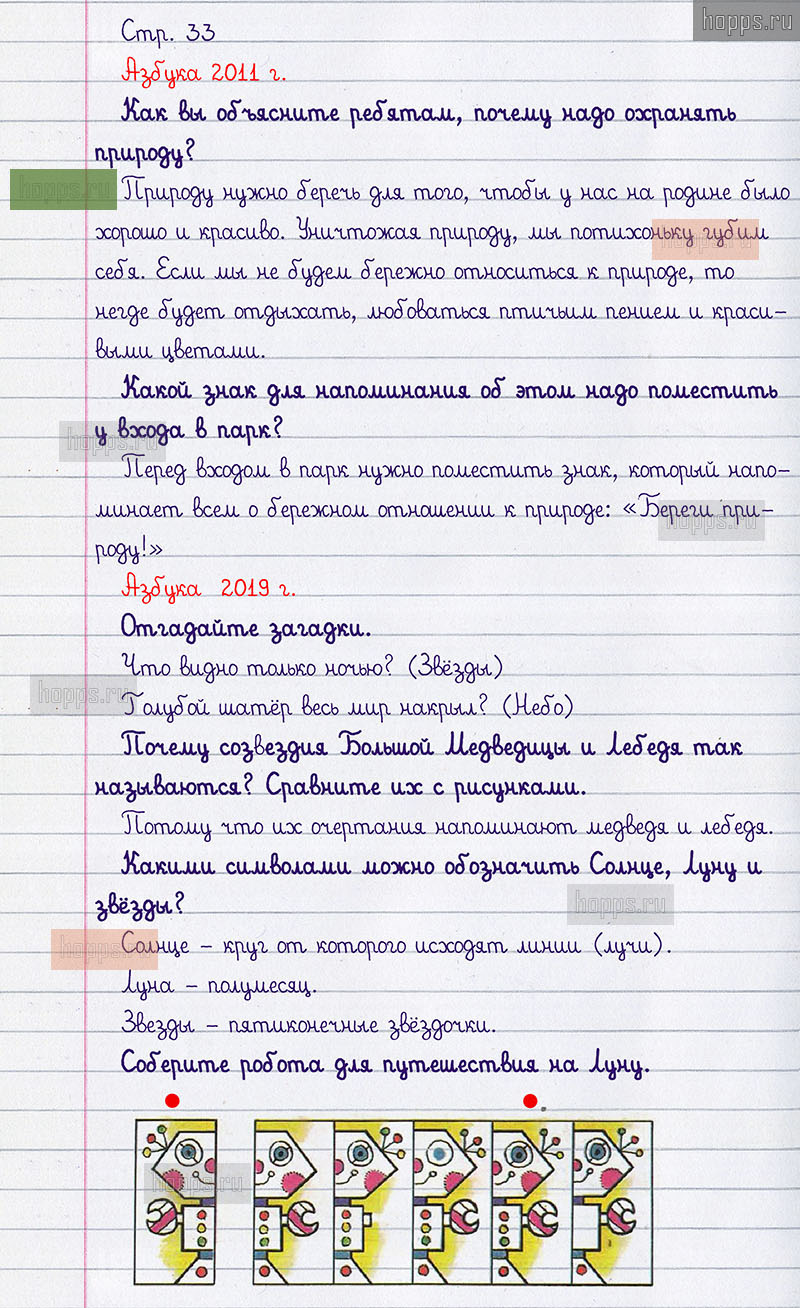 hopps.ru
Стр. 33
Азбука 2011 г.
Как вы объясните ребятам, почему надо охранять
природу?
hopps.ru
Природу нужно беречь для того, чтобы у нас на родине было
хорошо и красиво. Уничтожая природу, мы потихоньку губим
hopps.ru
себя. Если мы не будем бережно относиться к природе, то
негде будет отдыхать, любоваться птичьим пением и краси-
выми цветами.
Какой знак для напоминания об этом надо поместить
у входа в парк?
hopps.ru
Перед входом в парк нужно поместить знак, который напо-
минает всем о бережном отношении к природе: «Береги при-
hopps.ru
роду!»
Азбука 2019 г.
Отгадайте загадки.
Что видно только ночью? (Звёзды)
hopps.ru
Голубой шатёр весь мир накрыл? (Небо)
Почему созвездия Большой Медведицы и Лебедя так
называются? Сравните их с рисунками.
Потому что их очертания напоминают медведя и лебедя.
Какими символами можно обозначить Солнце, Луну и
звёзды?
hopps.ru
Солнце – круг от которого исходят линии (лучи).
hopps.ru
Луна – полумесяц.
Звезды – пятиконечные звёздочки.
Соберите робота для путешествия на Луну.
hopps.ru